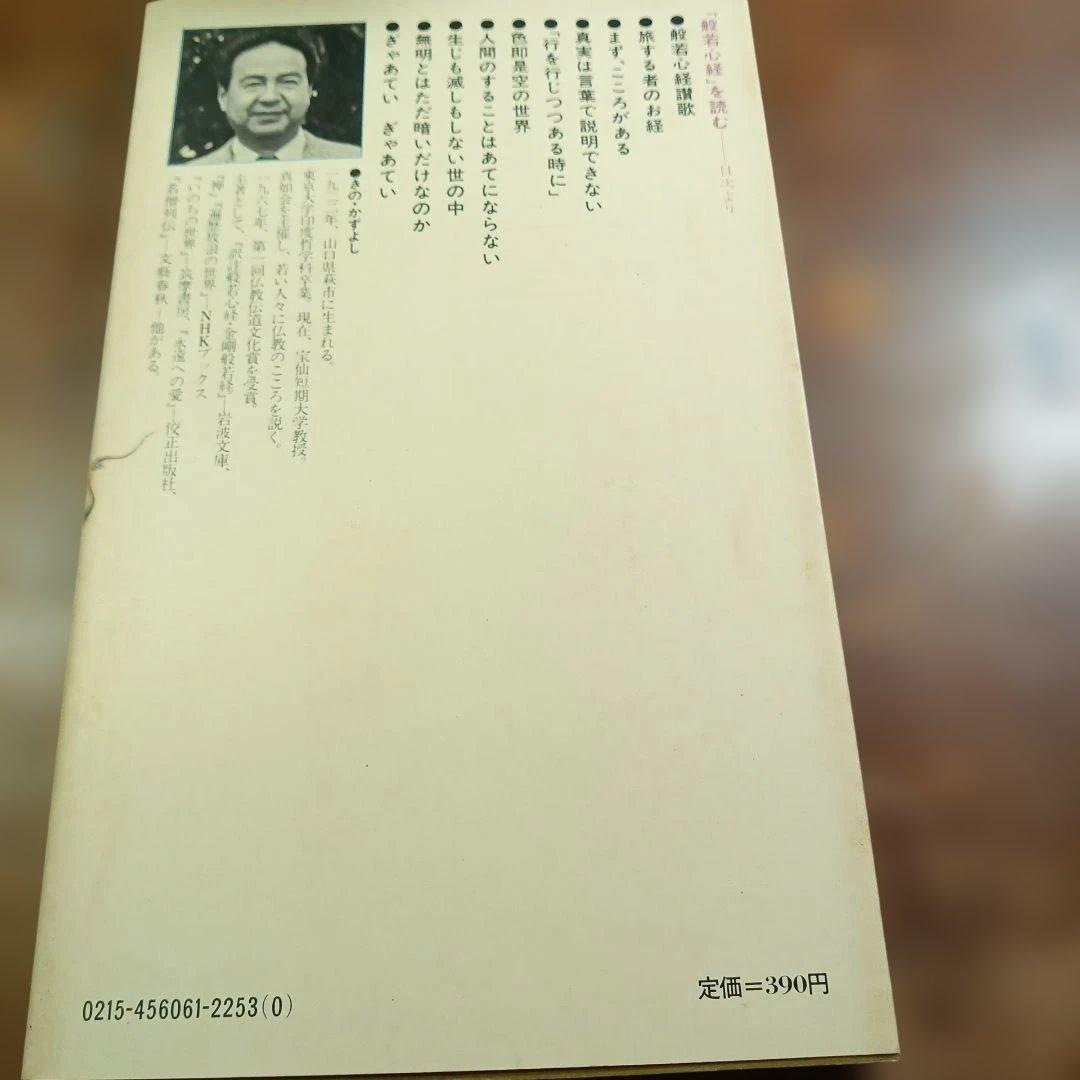 「般若心経」を読む——目次より
●般若心経讃歌
●旅する者のお経
●まず、こころがある
●真実は言葉で説明できない
●「行を行じつつある時に」
●色即是空の世界
●人間のすることはあてにならない
●生じも滅しもしない世の中
●無明とはただ暗いだけなのか
●ぎゃあてい ぎゃあてい
●きの・かずよし
一九二二年、山口県萩市に生まれる。
東京大学印度哲学科卒業。現在、宝仙短期大学教授。
真如会を主催し、若い人々に仏教のこころを説く。
一九六七年、第一回仏教伝道文化賞を受賞。
主著として、『訳註般若心経・金剛般若経』—岩波文庫、
『禅』『遍歴放浪の世界』—NHKブックス
『いのちの世界』—筑摩書房、『永遠への愛』—佼正出版社、
『名僧列伝』—文藝春秋—他がある。
定価=390円
0215-456061-2253(0)